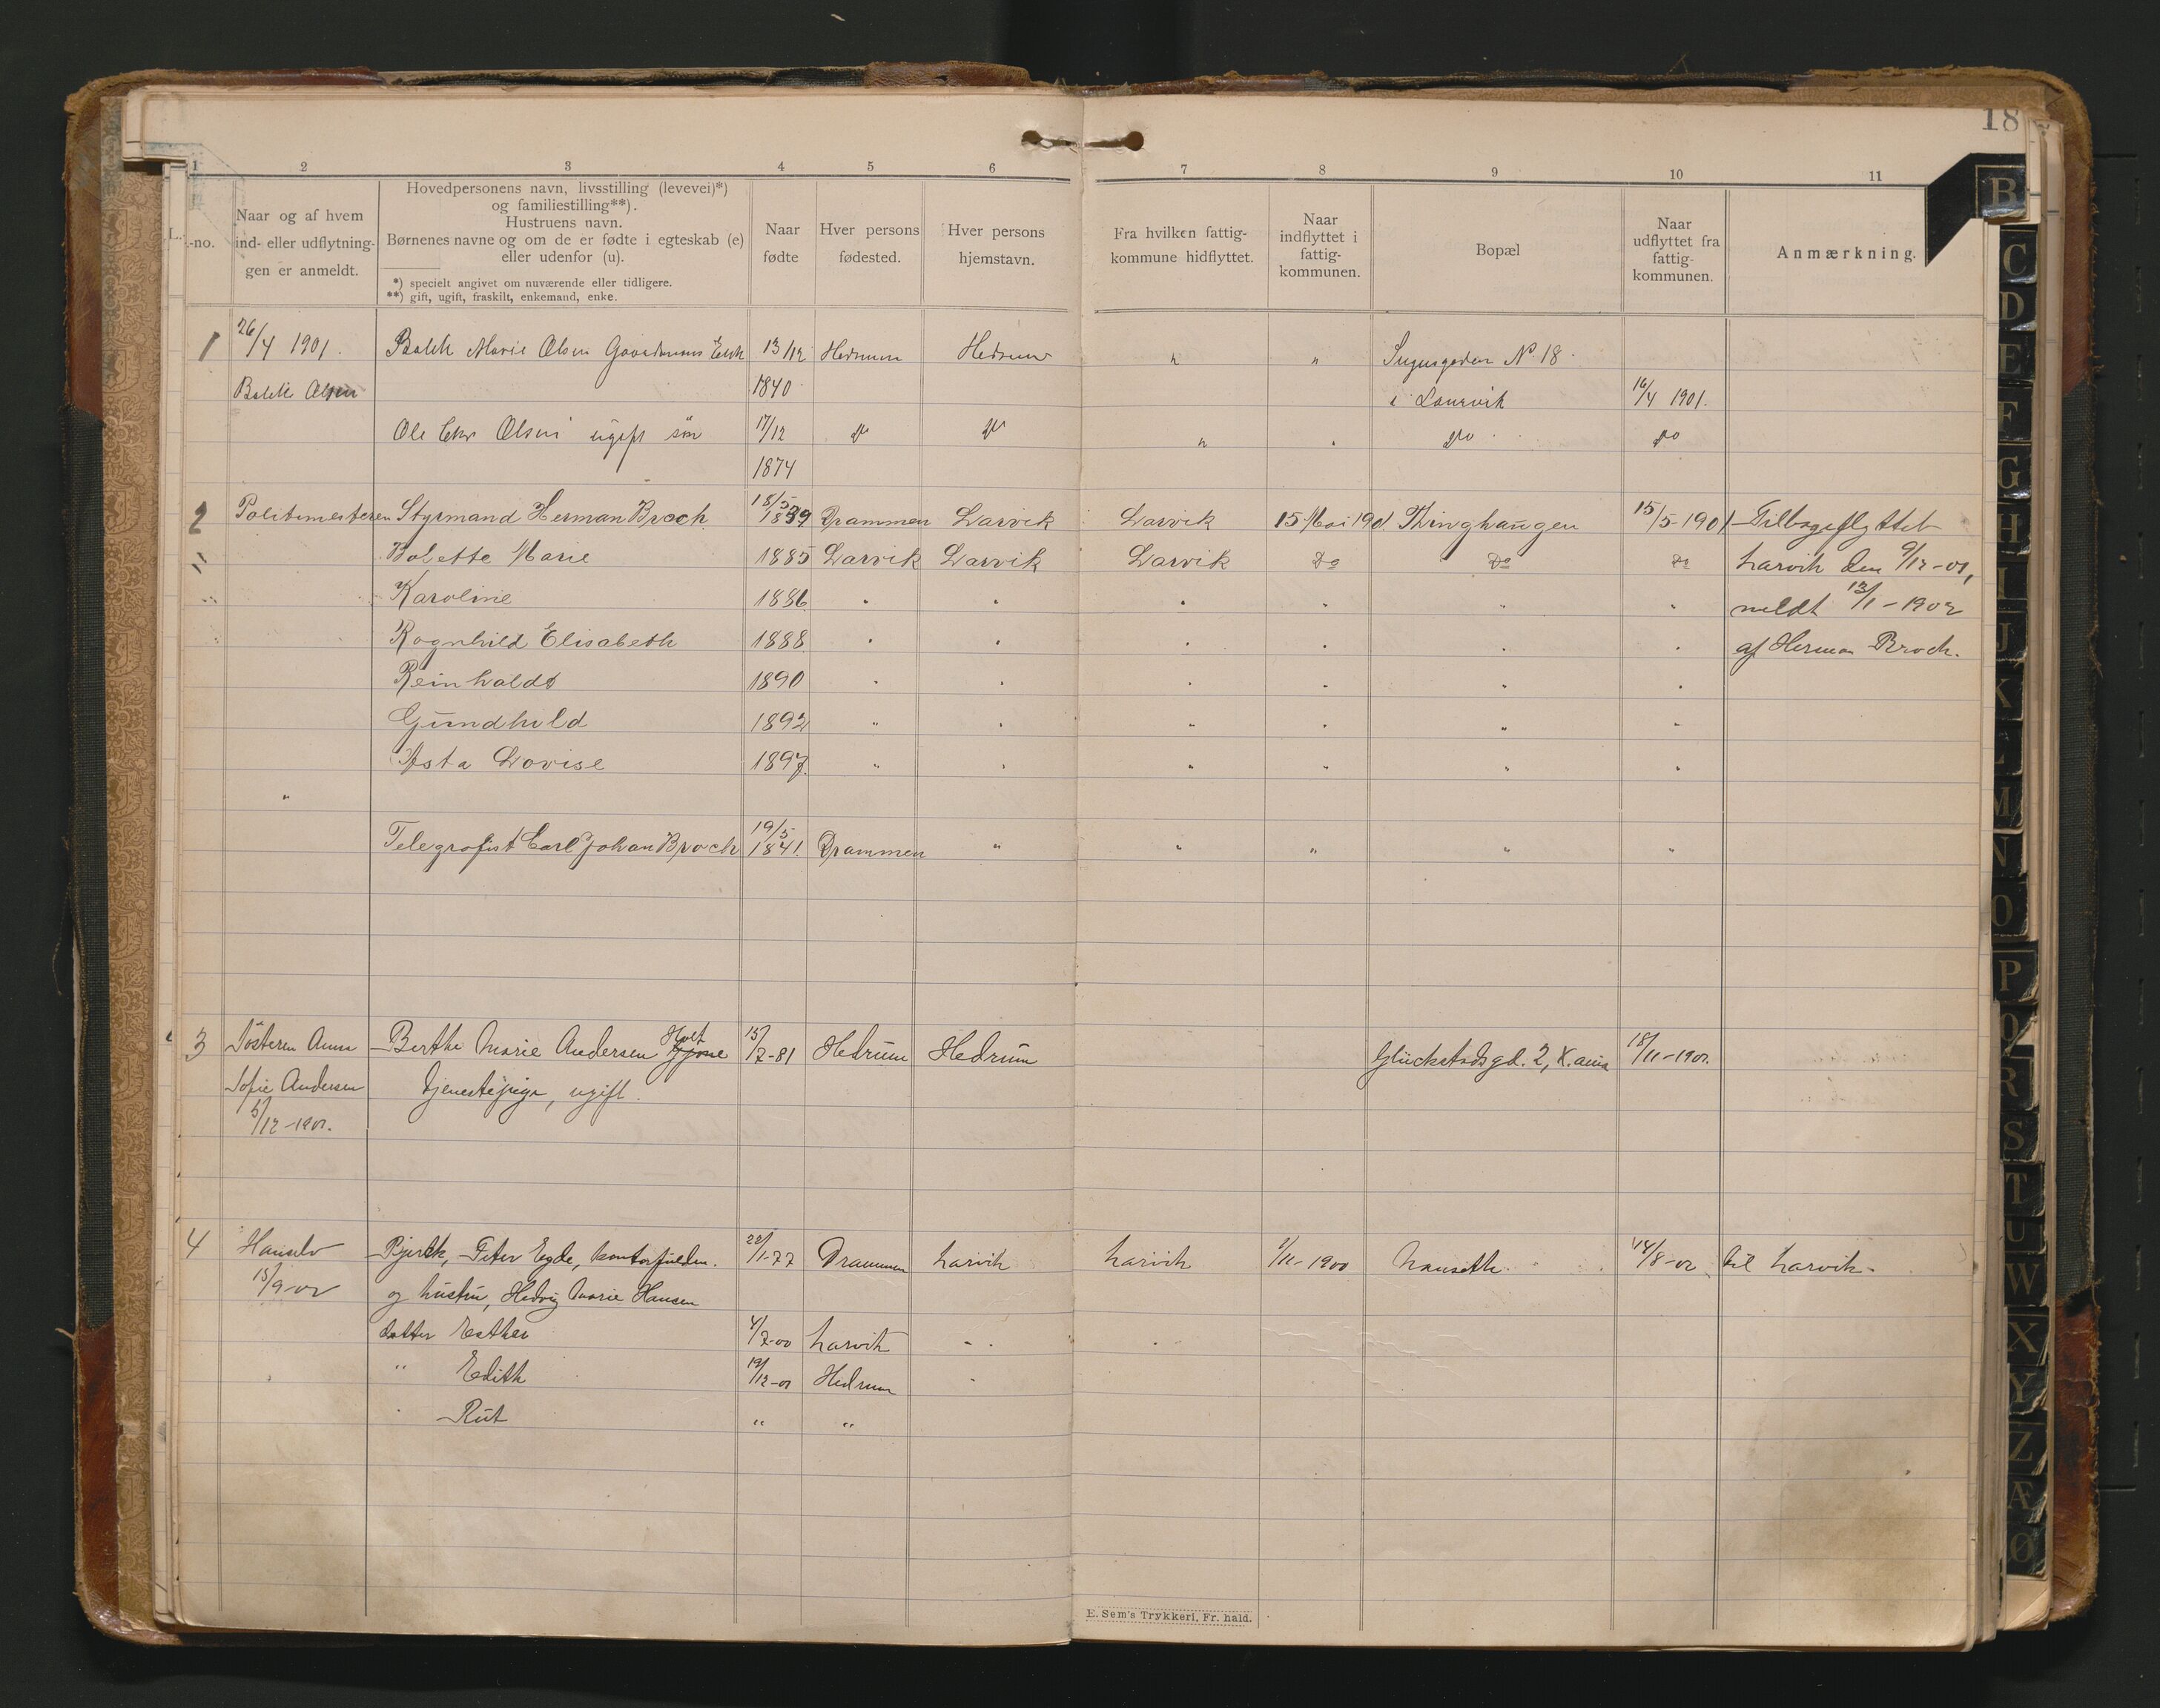 18
1 2 3 4 5 6 7 8 9 10 11
L.
-no.
Naar og af hvem
ind- eller udflytnin-
gen er anmeldt.
Hovedpersonens navn, livsstilling (levevei)*)
og familiestilling**).
Hustruens navn.
Børnenes navne og om de er fødte i egteskab (e)
eller udenfor (u).
*) specielt angivet om nuværende eller tidligere.
**) gift, ugift, fraskilt, enkemand, enke.
Naar
fødte
Hver persons
fødested.
Hver persons
hjemstavn.
Fra hvilken fattig-
kommune hidflyttet.
Naar
indflyttet i
fattig-
kommunen.
Bopæl
Naar
udflyttet fra
fattig-
kommunen.
Anmærkning.
1 26/4 1901. Marie Olsen 13/12 Hedrum Hedrum " " No 18
Olsen 1840 i Laurvik 16/4 1901.
Ole Chr Olsen ugift søn 17/12 do do " " do do
1874
2 Politimesteren Styrmand Herman Broch 18/5 1839 Drammen Larvik Larvik 15 Mai 1901 Thinghaugen 15/5-1901 Tilbageflyttet
" Bolette Marie 1885 Larvik Larvik Larvik Do Do Do Larvik den 9/12-01,
Karoline 1886 " " " " " " meldt 13/1-1902
Ragnhild Elisabeth 1888 " " " " " " af Herman Broch.
Reinholdt 1890 " " " " " "
Gundhild 1892 " " " " " "
Asta Lovise 1897. " " " " " "
"
Telegrafist Carl Johan Broch 19/5 1841. Drammen " " " " "
3 Søsteren Anna Berthe Marie Andersen Holt 15/7-81 Hedrum Hedrum Glückstadsgd. 2, 18/11-1901.
Sofie Andersen tjenestepige, ugift.
5/12-1901.
4 Bjerck, Peter Egde, 22/1-77 Drammen Larvik Larvik 1/11-1900 14/8-02 til Larvik.
15/9-02 og hustru, Hedvig Marie Hansen
datter Esther 4/7-00 Larvik "
" Edith 19/12-01 Hedrum "
" Rut " "
E. Sem's Trykkeri, Fr. hald.
B
C
D
E
F
G
H
I
J
K
L
M
N
O
P
Q
R
S
T
U
W
X
Y
Z
Æ
Ø